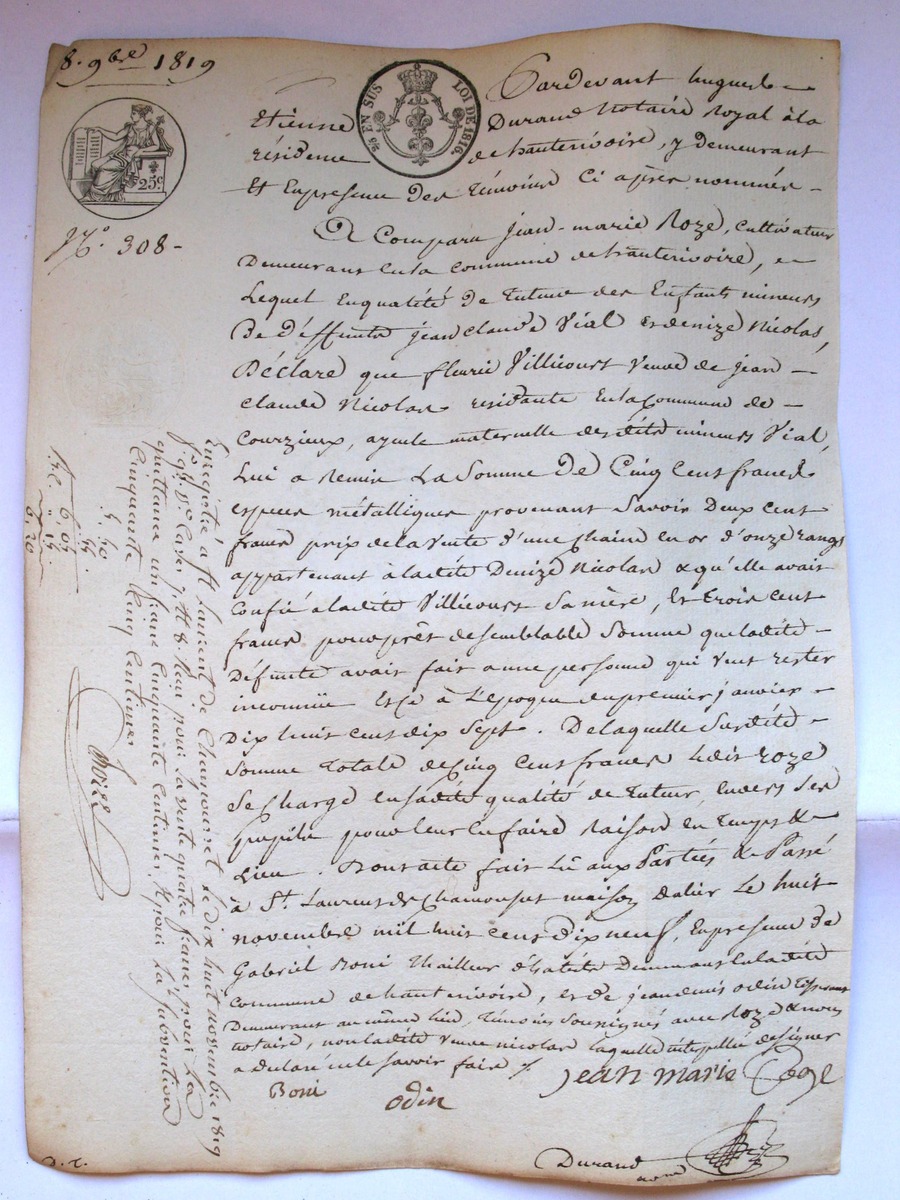 8. 9bre 1819
EN SUS LOI DE 1816.
25c
No. 308-
Pardevant hugues
Etienne Durand Notaire Royal à la
résidence de hauterivoire, y demeurant
Et En presence Des témoins Ci après nommés -
A Comparu jean-marie Roze, cultivateur
Demeurant en la commune de hauterivoire,
Lequel En qualité De tuteur des Enfants mineurs
De Déffunts jean claude Vial et denize Nicolas,
Déclare que fleurie Villicourt Veuve de jean
claude Nicolas residante En la Commune de
Courzieux, ayeule maternelle desdits mineurs Vial,
Lui a Remis La Somme De Cinq Cent francs
especes métalliques provenant Savoir Deux cent
francs prix de la vente d'une Chaine en or d'onze rangs
appartenant à ladite Denize Nicolas & qu'elle avait
Confié à ladite Villicourt Sa mère, Et trois cent
francs pour prêt de semblable Somme que ladite
Défunte avait fait a une personne qui veut rester
inconnüe Et Ce à L'epoque du premier janvier
Dix huit cent dix Sept. De laquelle Susdite
Somme Totale de Cinq Cent francs ledit Roze
Se Charge en sadite qualité De tuteur envers Ses
pupiles pour leur En faire Raison en temps &
Lieu. Dont acte fait Lû aux Parties & Passé
à St. Laurent de Chamousset maison dalier Le huit
novembre mil huit cent dix neuf, En presence De
Gabriel Boni thailleur d'habits Demeurant En ladite
commune de hauterivoire, et de jean denis odin tisserand
Demeurant au même lieu, témoins Soussignés avec Roze & nous
notaire, non ladite Veuve nicolas laquelle interpellée de Signer
a declaré ne le Savoir faire /.
jean marie Roze
Boni
odin
Durand
nore
Enregistré à St Laurent de Chamousset le dix huit novembre 1819
fo. 98 Vo. Case 7 & 8. Reçu pour la vente quatre francs pour la
quittance un franc cinquante centimes & pour la subvention
cinquante cinq centimes
6.05